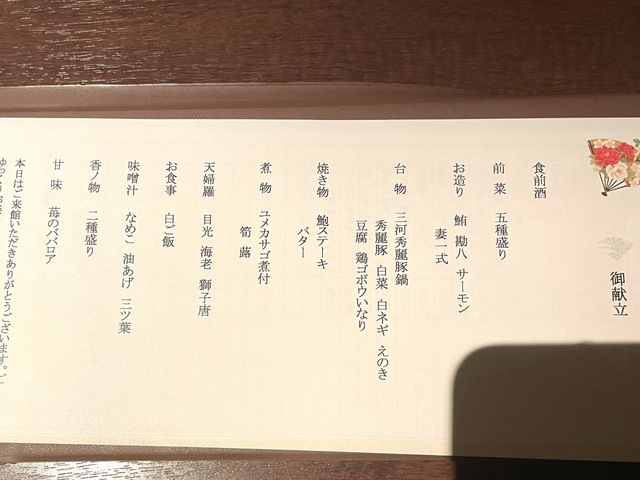 御献立
食前酒
前菜 五種盛り
お造り 鮪 勘八 サーモン
妻一式
台物 三河秀麗豚鍋
秀麗豚 白菜 白ネギ えのき
豆腐 鶏ゴボウいなり
焼き物 鮑ステーキ
バター
煮物 ユメカサゴ煮付
筍 蕗
天婦羅 目光 海老 獅子唐
お食事 白ご飯
味噌汁 なめこ 油あげ 三ツ葉
香ノ物 二種盛り
甘味 苺のババロア
本日はご来館いただきありがとうございます。ご